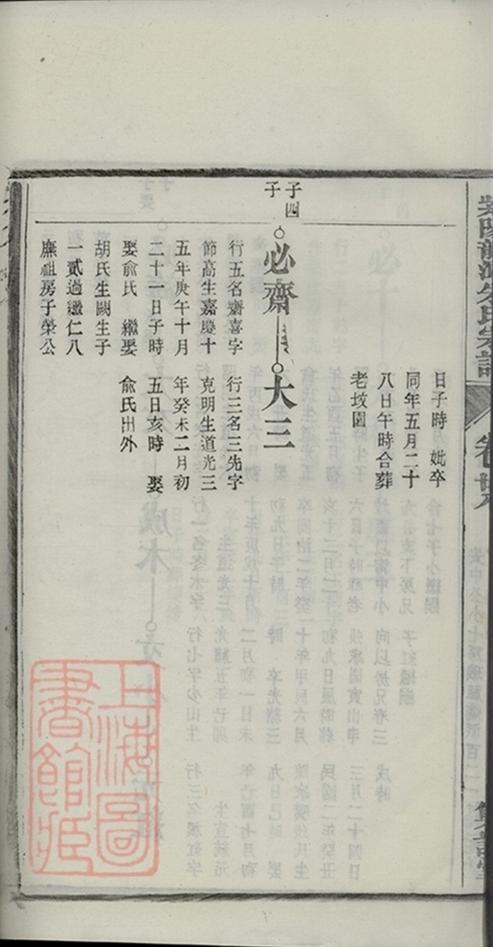 日子時　妣卒
同年五月二十
八日午時合葬
老坟園
子四
子
必齋
大三
行五名齋喜字
節高生嘉慶十
五年庚午十月
二十一日子時
娶俞氏　繼娶
胡氏生闕生子
一貳過繼仁八
廉祖房子榮公
行三名三先字
克明生道光三
年癸未二月初
五日亥時　娶
俞氏出外
上海圖
書館藏